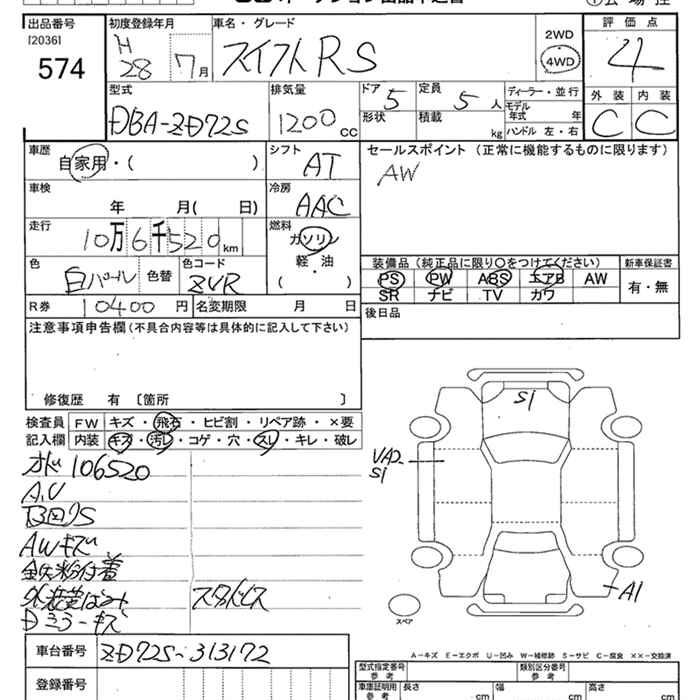 出品番号 初度登録年月 車名・グレード 評価点
[2036]
574
H28 7月 スイフトRS 2WD 4WD 4
型式 排気量 ドア 5 定員 5人 ディーラー・並行 外装 内装
DBA-ZD72S 1200cc 形状 積載 kg モデル年式 年 C C
ハンドル 左・右
車歴 シフト セールスポイント(正常に機能するものに限ります)
自家用・( ) AT AW
車検 冷房
年 月( 日) AAC
走行 燃料
10万6千520km ガソリン
軽・油
( )
色 色コード 装備品(純正品に限り○をつけてください) 新車保証書
白パール 色替 ZVR PS PW ABS エアB AW 有・無
SR ナビ TV カワ
R券 10400円 名変期限 月 日 後日品
注意事項申告欄(不具合内容等は具体的に記入して下さい)
修復歴 有 〔箇所 〕
検査員 FW キズ・飛石・ヒビ割・リペア跡・×要
記入欄 内装 キズ・汚レ・コゲ・穴・スレ・キレ・破レ
オド106520
A.U
AWキズ
鉄粉付着
スタッドレス
Dミラーキズ
S1
UA2
S1
A1
スペア
A-キズ E-エクボ U-凹み W-補修跡 S-サビ C-腐食 ××-交換済
車台番号 ZD72S-313172
登録番号
型式指定番号 参考 類別区分番号 参考
車庫証明用 参考 長さ cm 幅 cm 高さ cm